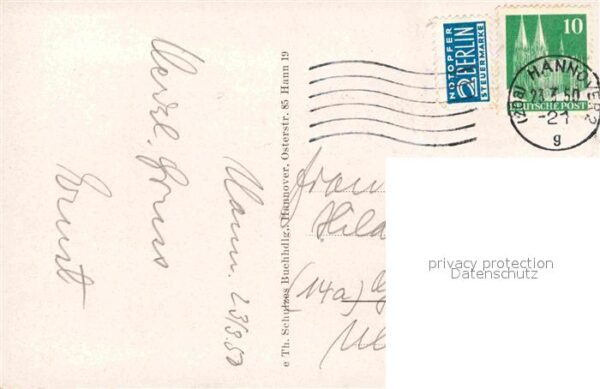 Herzl. Gruss
Ernst
Hann. 23/3.50
e Th. Schulzes Buchhdlg., Hannover, Osterstr. 85 Hann 19
NOTOPFER
2 BERLIN
STEUERMARKE
10
DEUTSCHE POST
(20a) HANNOVER 2
-21
g
Frau
Hild
(14a)
privacy protection
Datenschutz